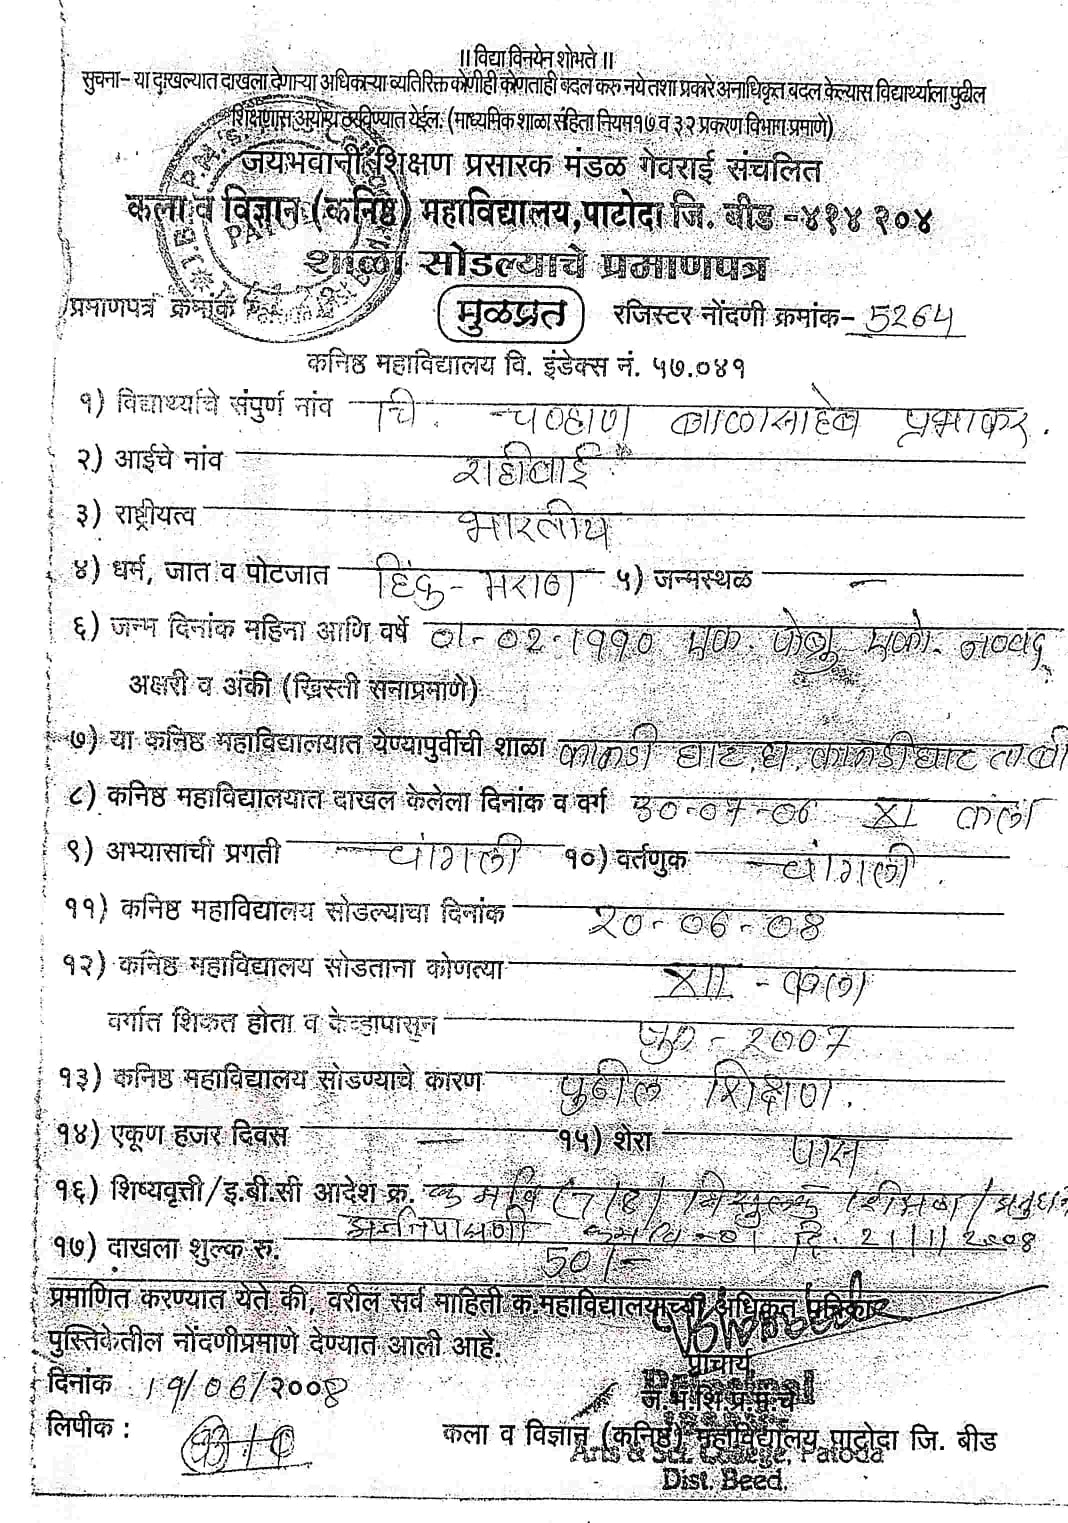 ॥ विद्या विनयेन शोभते ॥
सुचना- या दाखल्यात दाखला देणाऱ्या अधिकाऱ्या व्यतिरिक्त कोणीही कोणताही बदल करु नये तशा प्रकारे अनाधिकृत बदल केल्यास विद्यार्थ्याला पुढील
शिक्षणास अयोग्य ठरविण्यात येईल. (माध्यमिक शाळा संहिता नियम१७ व ३२ प्रकरण विभाग प्रमाणे)
जयभवानी शिक्षण प्रसारक मंडळ गेवराई संचलित
कला व विज्ञान (कनिष्ठ) महाविद्यालय, पाटोदा जि. बीड -४१४ २०४
शाळा सोडल्याचे प्रमाणपत्र
प्रमाणपत्र क्रमांक मुळप्रत रजिस्टर नोंदणी क्रमांक- 5264
कनिष्ठ महाविद्यालय वि. इंडेक्स नं. ५७.०४१
१) विद्यार्थ्याचे संपुर्ण नांव चि. चव्हाण बाळासाहेब प्रभाकर.
२) आईचे नांव राहीबाई
३) राष्ट्रीयत्व भारतीय
४) धर्म, जात व पोटजात हिंदु - मराठा ५) जन्मस्थळ —
६) जन्म दिनांक महिना आणि वर्षे ०१-०२-१९९० एक. फेब्रु. एको. नव्वद
अक्षरी व अंकी (ख्रिस्ती सनाप्रमाणे)
७) या कनिष्ठ महाविद्यालयात येण्यापुर्वीची शाळा
८) कनिष्ठ महाविद्यालयात दाखल केलेला दिनांक व वर्ग 30-07-06 XI कला
९) अभ्यासाची प्रगती चांगली १०) वर्तणुक चांगली.
११) कनिष्ठ महाविद्यालय सोडल्याचा दिनांक 20-06-08
१२) कनिष्ठ महाविद्यालय सोडताना कोणत्या XII - कला
वर्गात शिकत होता व केव्हापासून जुन - 2007
१३) कनिष्ठ महाविद्यालय सोडण्याचे कारण पुढील शिक्षण.
१४) एकूण हजर दिवस — १५) शेरा पास
१६) शिष्यवृत्ती/इ.बी.सी आदेश क्र.
१७) दाखला शुल्क रु. 50/-
प्रमाणित करण्यात येते की, वरील सर्व माहिती क.महाविद्यालयाच्या अधिकृत
पुस्तिकेतील नोंदणीप्रमाणे देण्यात आली आहे.
प्राचार्य
Principal
दिनांक 19/06/2008 ज.भ.शि.प्र.मं.चे
लिपीक : कला व विज्ञान (कनिष्ठ) महाविद्यालय पाटोदा जि. बीड
Arts & Sci. College, Patoda
Dist. Beed.